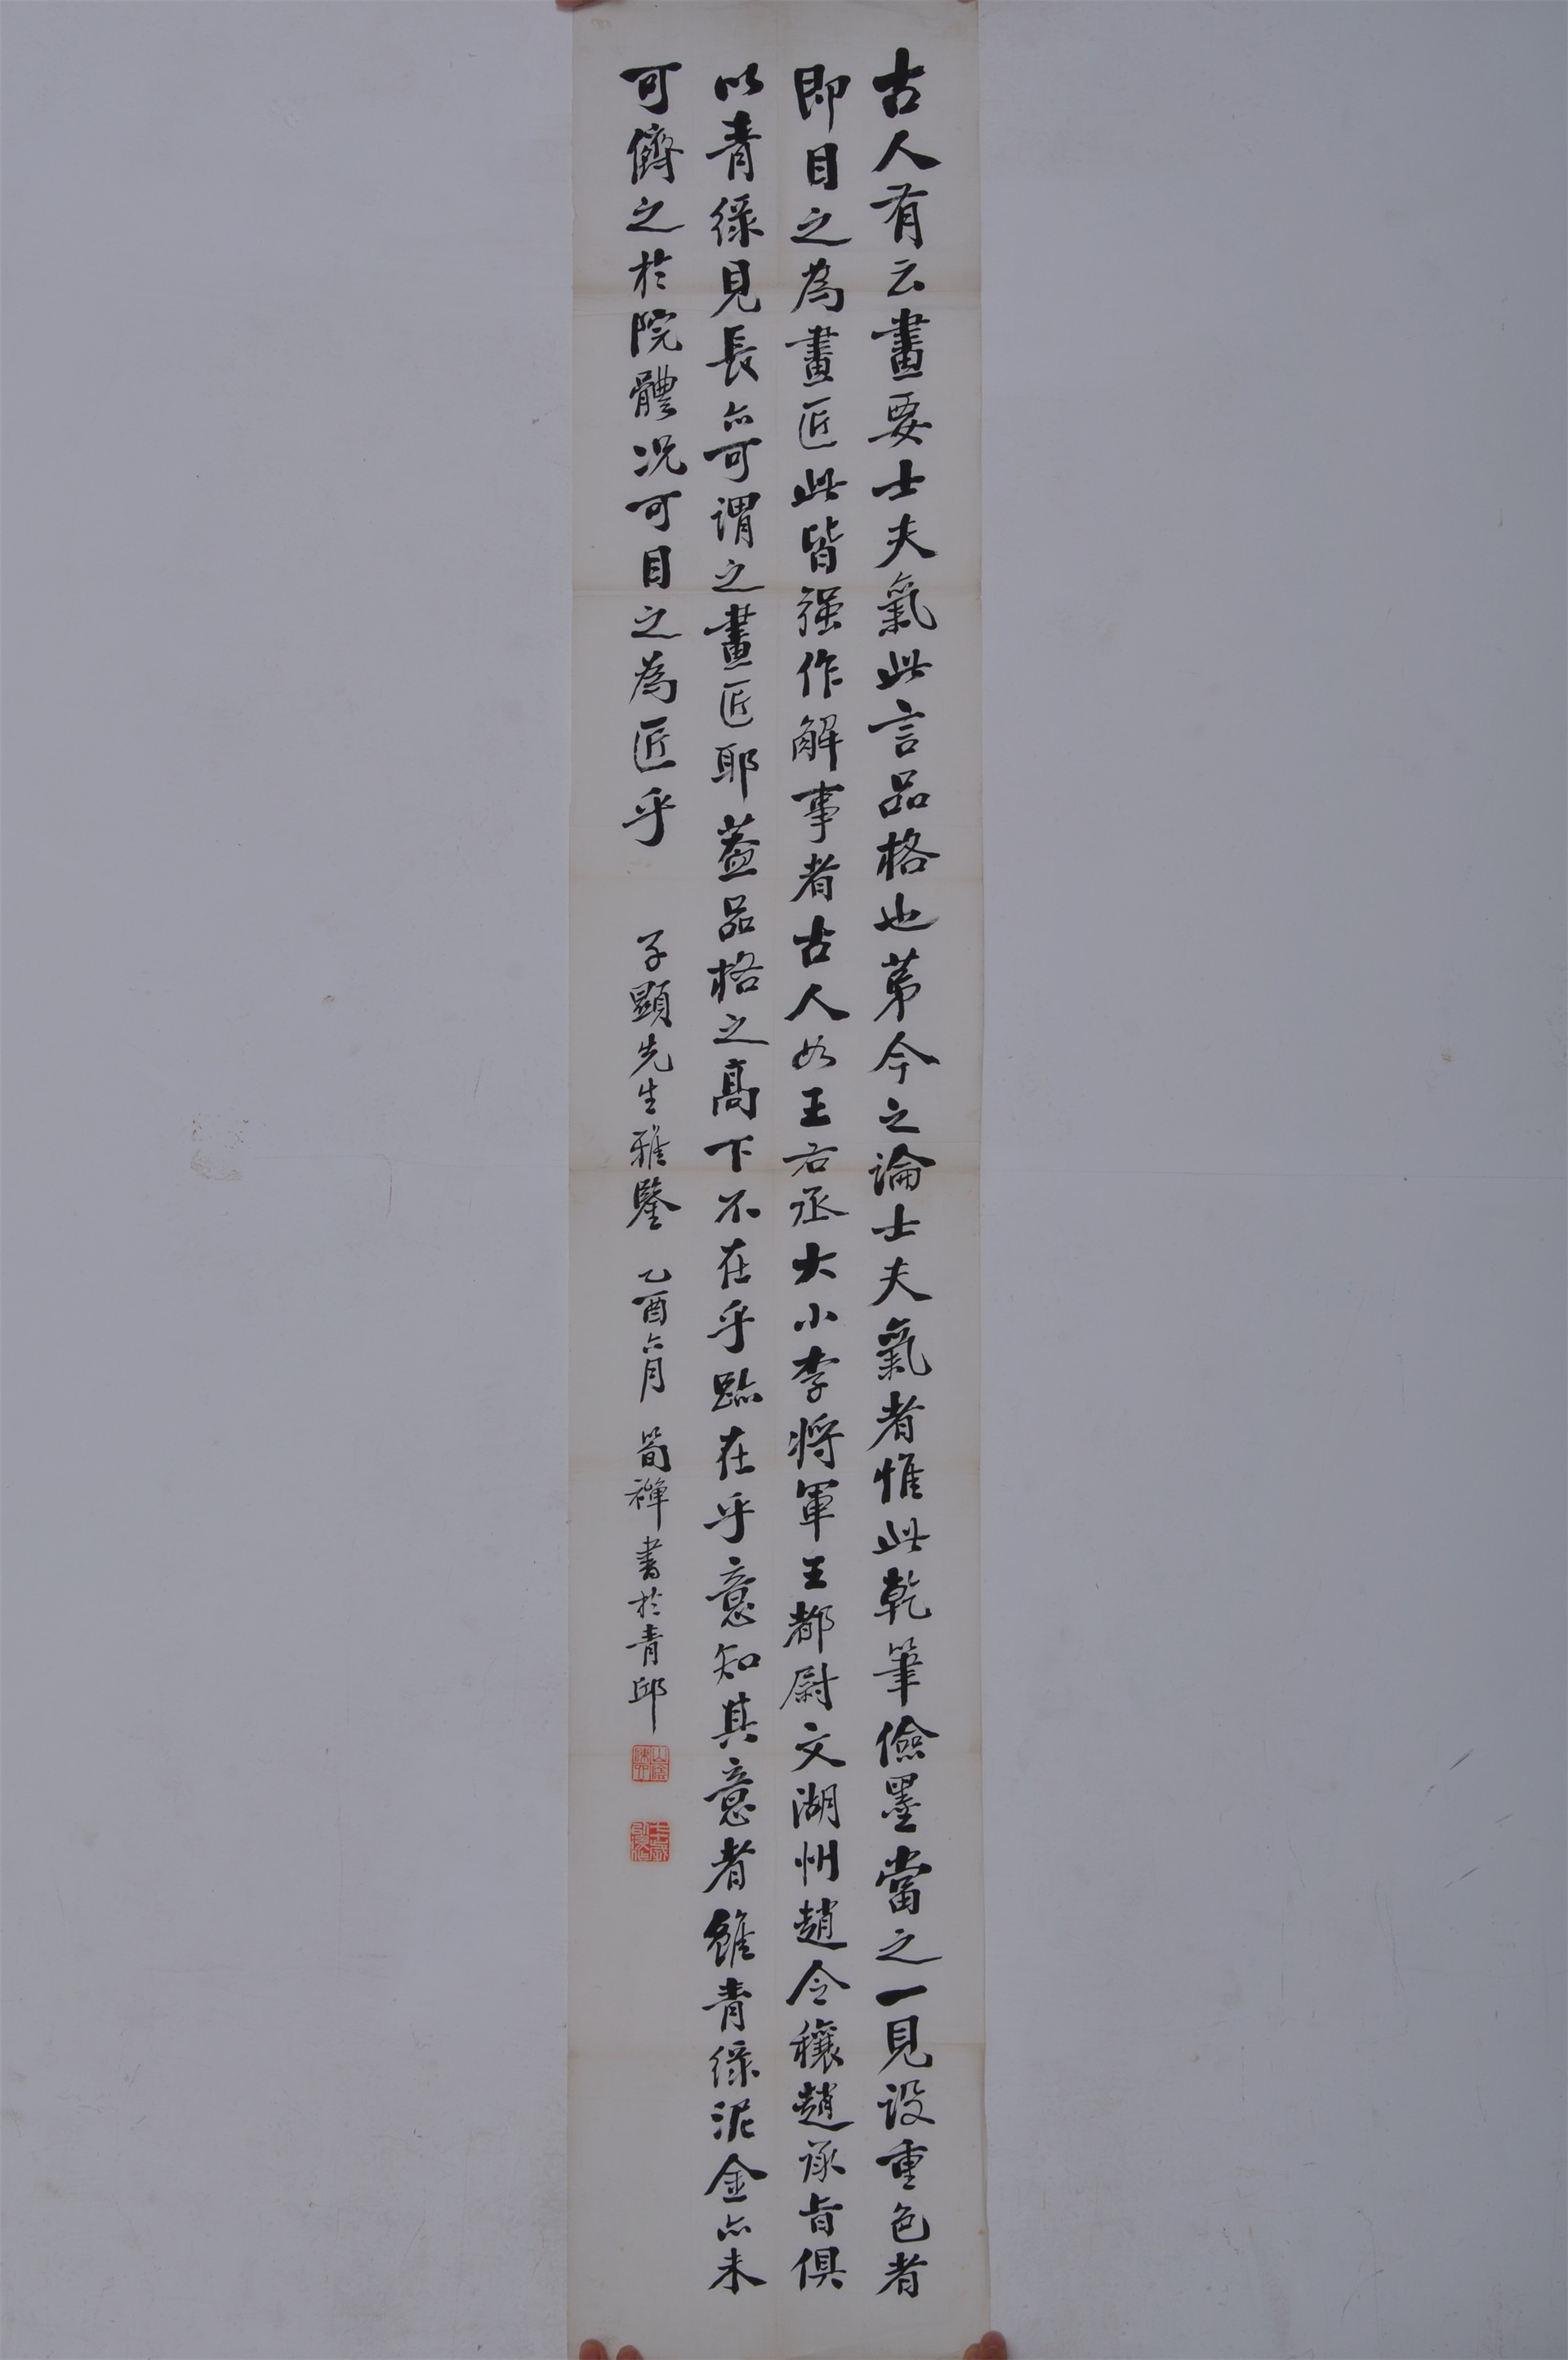 古人有云畫要士夫氣此言品格也苐今之論士夫氣者惟此乾筆儉墨當之一見設重色者
即目之為畫匠此皆强作解事者古人如王右丞大小李將軍王都尉文湖州趙令穰趙承旨俱
以青緑見長亦可謂之畫匠耶葢品格之高下不在乎跡在乎意知其意者雖青緑泥金亦未
可儕之於院體况可目之為匠乎
子顯先生雅鑒 乙酉六月 筍禪書於青邱